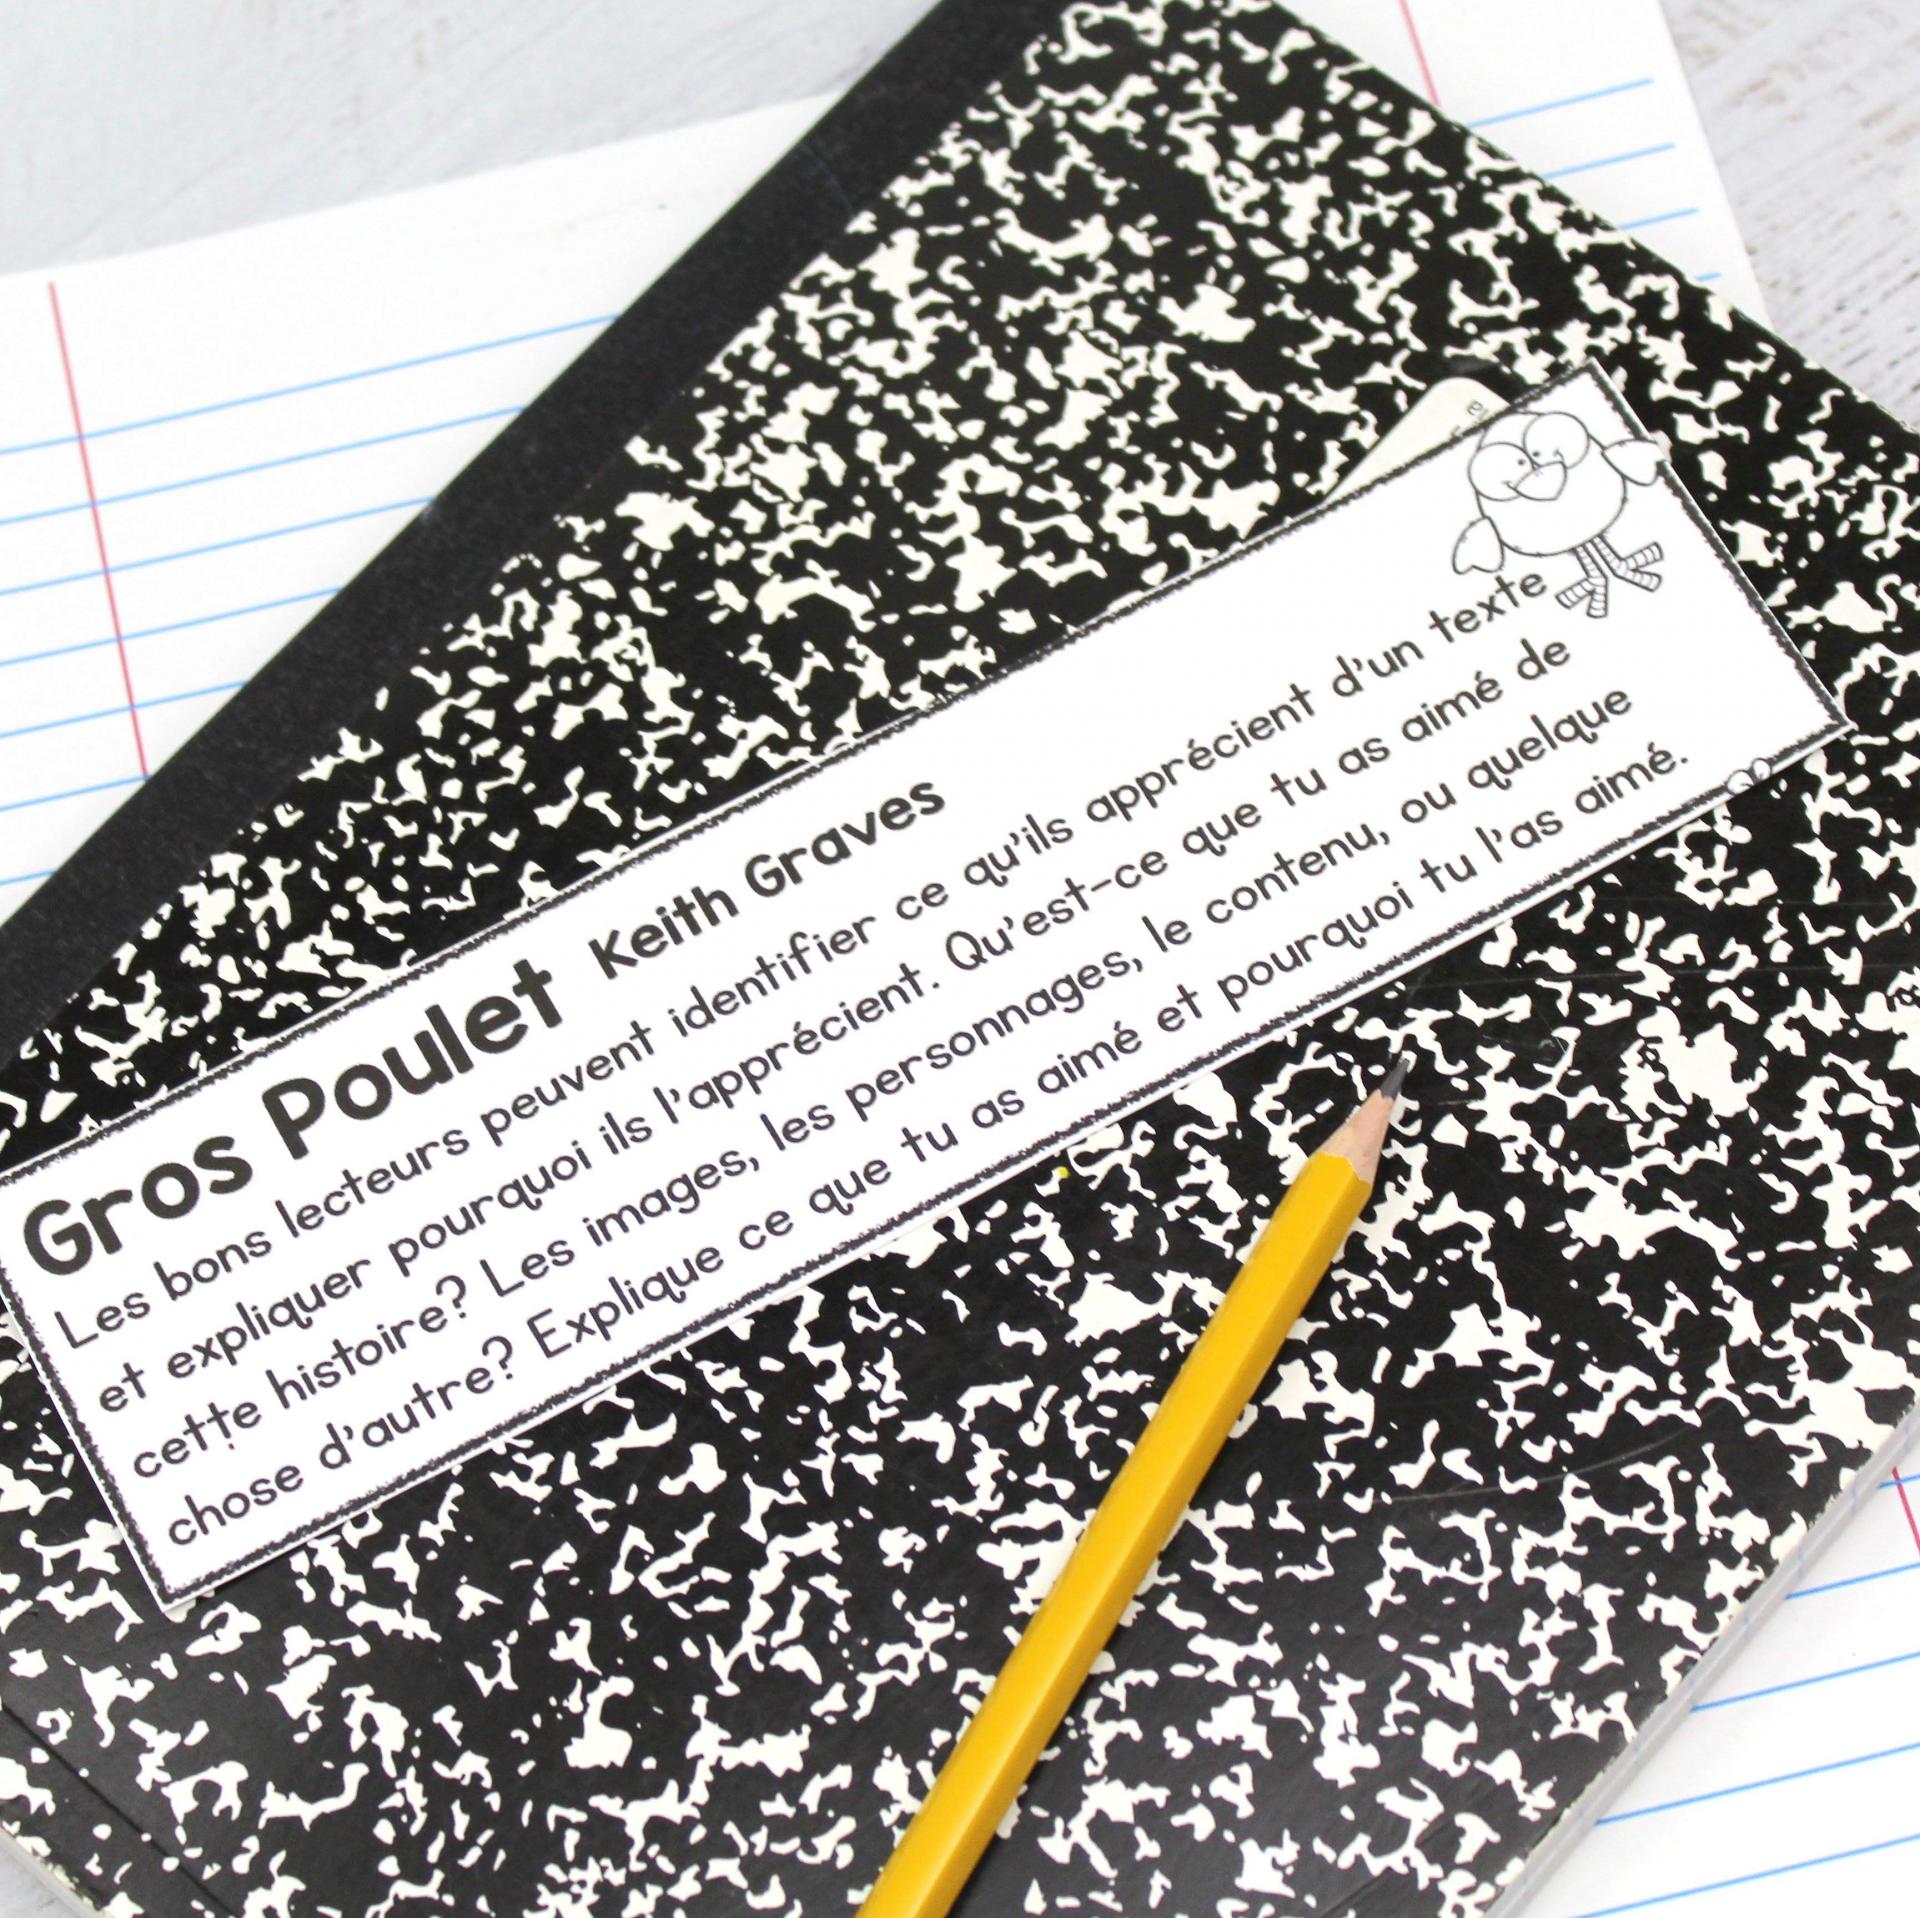 Gros Poulet Keith Graves
Les bons lecteurs peuvent identifier ce qu'ils apprécient d'un texte
et expliquer pourquoi ils l'apprécient. Qu'est-ce que tu as aimé de
cette histoire? Les images, les personnages, le contenu, ou quelque
chose d'autre? Explique ce que tu as aimé et pourquoi tu l'as aimé.